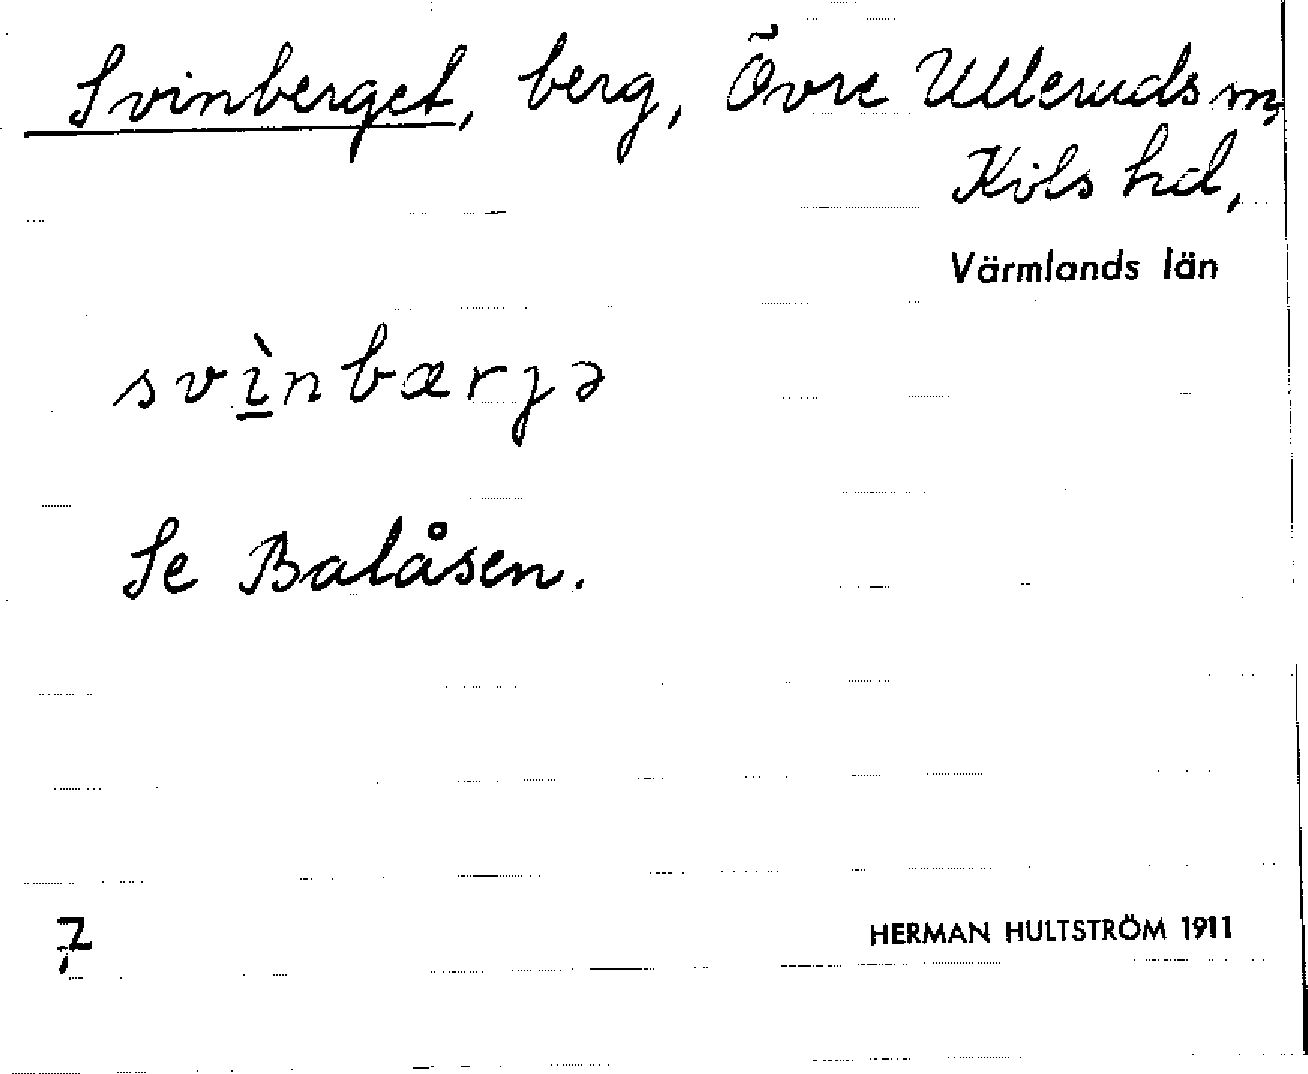 Svinberget, berg, Övre Ulleruds sn,
Kils hd,
Värmlands län
svì̲nbærjə
Se Balåsen.
7
HERMAN HULTSTRÖM 1911